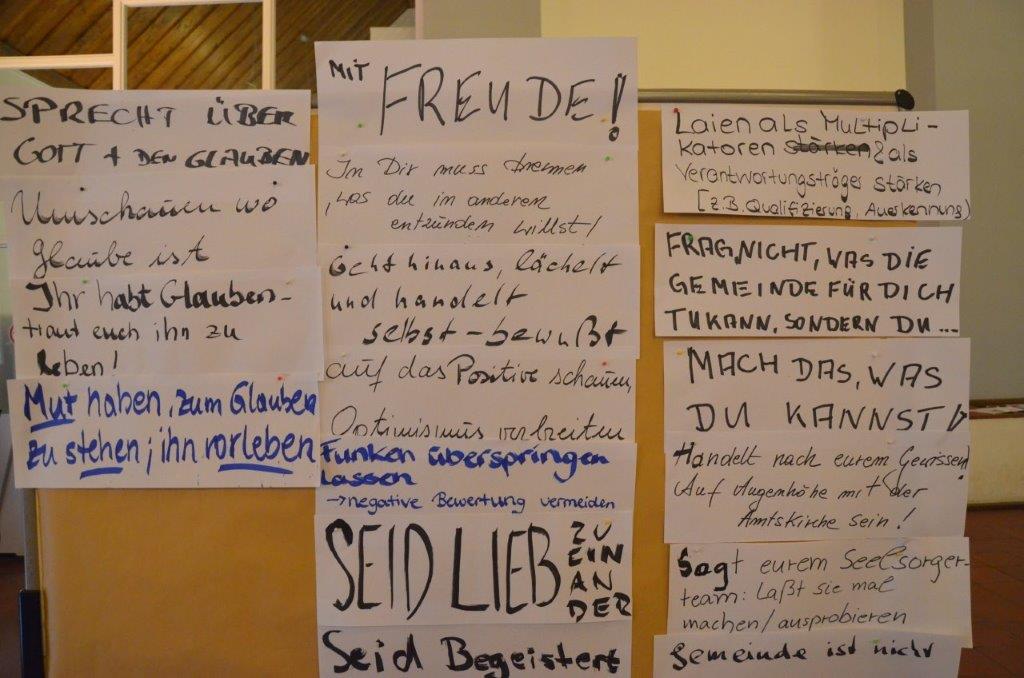 SPRECHT ÜBER
GOTT + DEN GLAUBEN
Umschauen wo
Glaube ist
Ihr habt Glauben-
traut euch ihn zu
leben!
Mut haben, zum Glauben
zu stehen; ihn vorleben
MIT FREUDE!
In Dir muss brennen
was du in anderen
entzünden willst!
Geht hinaus, lächelt
und handelt
selbst-bewußt
auf das Positive schauen,
Optimismus verbreiten
Funken überspringen
lassen
→negative Bewertung vermeiden
SEID LIEB ZU
EIN
AN
DER
Seid Begeistert
Laien als Multipli-
katoren stärken & als
Verantwortungsträger stärken
[z.B. Qualifizierung, Anerkennung)
FRAG NICHT, WAS DIE
GEMEINDE FÜR DICH
TU KANN, SONDERN DU...
MACH DAS, WAS
DU KANNST!
Handelt nach eurem Gewissen!
Auf Augenhöhe mit der
Amtskirche sein!
Sagt eurem Seelsorger-
team: Laßt sie mal
machen/ausprobieren
Gemeinde ist nicht